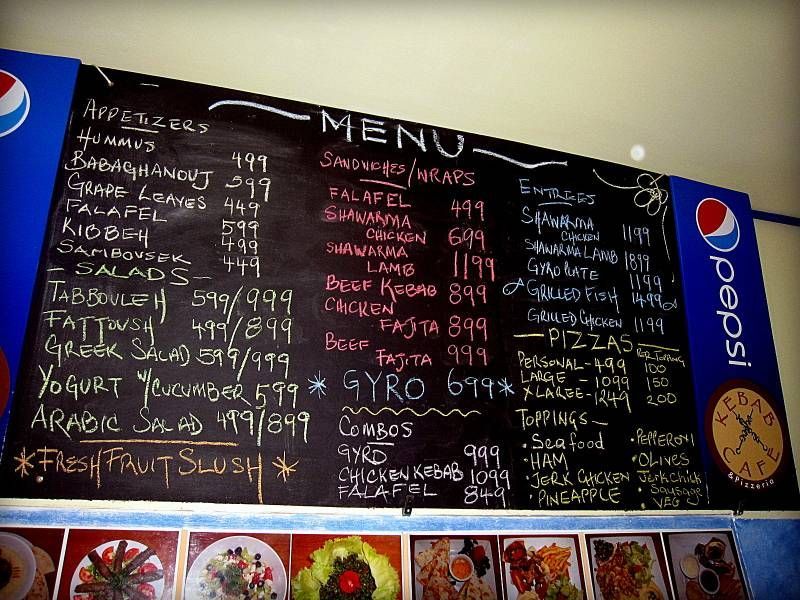 MENU
APPETIZERS
HUMMUS 499
BABAGHANOUJ 599
GRAPE LEAVES 449
FALAFEL 599
KIBBEH 499
SAMBOUSEK 449
- SALADS -
TABBOULEH 599/999
FATTOUSH 499/899
GREEK SALAD 599/999
YOGURT W/CUCUMBER 599
ARABIC SALAD 499/899
*FRESH FRUIT SLUSH*
SANDWICHES/WRAPS
FALAFEL 499
SHAWARMA
CHICKEN 699
SHAWARMA
LAMB 1199
BEEF KEBAB 899
CHICKEN
FAJITA 899
BEEF
FAJITA 999
*GYRO 699*
COMBOS
GYRO 999
CHICKEN KEBAB 1099
FALAFEL 849
ENTREES
SHAWARMA
CHICKEN 1199
SHAWARMA LAMB 1899
GYRO PLATE 1199
GRILLED FISH 1499
GRILLED CHICKEN 1199
- PIZZAS -
PER TOPPING
PERSONAL - 499 100
LARGE - 1099 150
XLARGE - 1249 200
TOPPINGS -
• Seafood
• HAM
• JERK CHICKEN
• PINEAPPLE
• PEPPERONI
• OLIVES
JERK CHICK
SAUSAGE
• VEG
pepsi
KEBAB CAFE
& Pizzeria